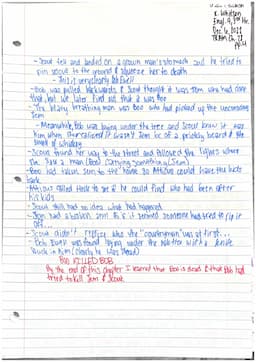 K. Whitson
Eng. 9, 1st Hr.
Dec. 6, 2021
TKAM Ch. 28
- Scout fell and landed on a grown man's stomach and he tried to
pin scout to the ground & squeeze her to death
- This is very clearly Bob Ewell
- Bob was pulled backwards & Scout thought it was Jem who had done
that, but we later find out that it was Boo
- The heavy breathing man was Boo who had picked up the unconscious
Jem
- Meanwhile, Bob was laying under the tree and Scout knew it was
him when she realized it wasn't Jem bc of a prickly beard & the
smell of whiskey
- Scout found her way to the street and followed the lights where
she saw a man (Boo) carrying something (Jem)
- Boo had taken Jem to the house so Atticus could have the kids
back
- Atticus called Heck to see if he could find who had been after
his kids
- Scout still had no idea what had happened
- Jem had a broken arm as if someone had tried to rip it
off...
- Scout didn't realize who the "countryman" was at first...
- Bob Ewell was found lying under the oak tree with a knife
stuck in him (clearly he was dead)
BOO KILLED BOB
By the end of this chapter I learned that Bob is dead & that Bob had
tried to kill Jem & Scout